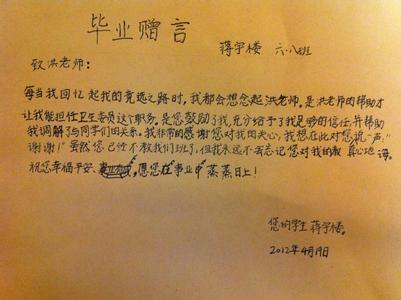 毕业赠言
蒋宇楼 六.八班
致洪老师：
每当我回忆起我的竞选之路时，我都会想念起洪老师，是洪老师的帮助才
让我能担任卫生委员这个职务。是您鼓励了我，充分给予了我足够的信任，并帮助
我调解了与同学们的关系。我非常的感谢您对我的关心，我想在此对您说一声“
谢谢！”虽然您已经不教我们班了，但我永远不会忘记您对我的教 真心地 诲。
祝您幸福平安、愿您在事业中蒸蒸日上！
您的学生 蒋宇楼。
2012年4月19日